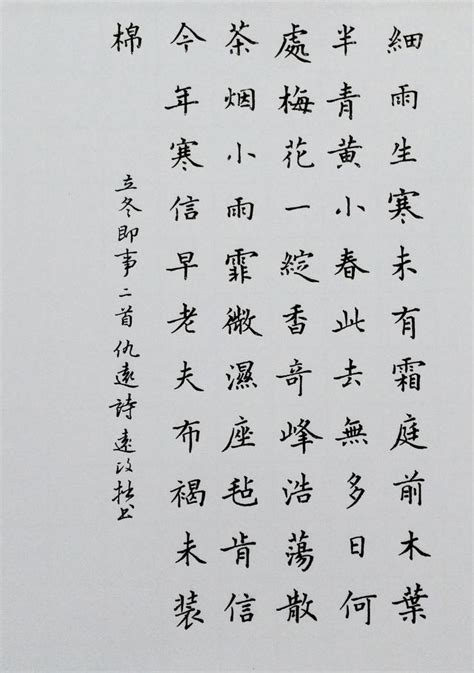 細雨生寒未有霜庭前木葉
半青黄小春此去無多日何
處梅花一綻香竒峰浩蕩散
茶烟小雨霏微濕座毡肯信
今年寒信早老夫布褐未装
棉
立冬即事二首仇遠詩遠政拙书